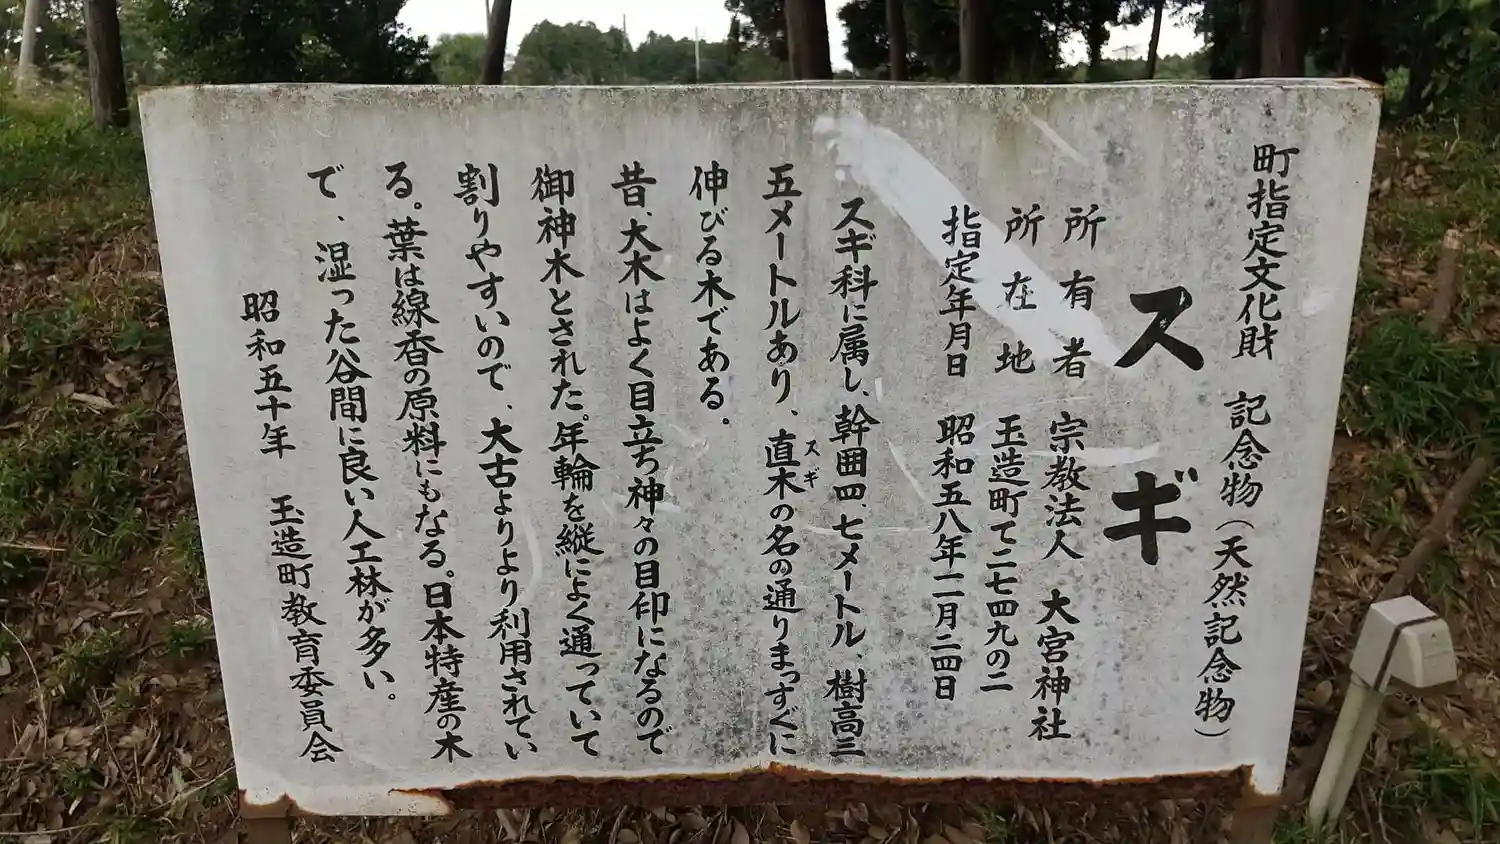 町指定文化財　記念物（天然記念物）
スギ
所有者　宗教法人　大宮神社
所在地　玉造町て二七四九の二
指定年月日　昭和五八年二月二四日
スギ科に属し、幹囲四、七メートル、樹高三
五メートルあり、直木の名の通りまっすぐに
スギ
伸びる木である。
昔、大木はよく目立ち神々の目印になるので
御神木とされた。年輪を縦によく通っていて
割りやすいので、大古よりより利用されてい
る。葉は線香の原料にもなる。日本特産の木
で、湿った谷間に良い人工林が多い。
昭和五十年　玉造町教育委員会